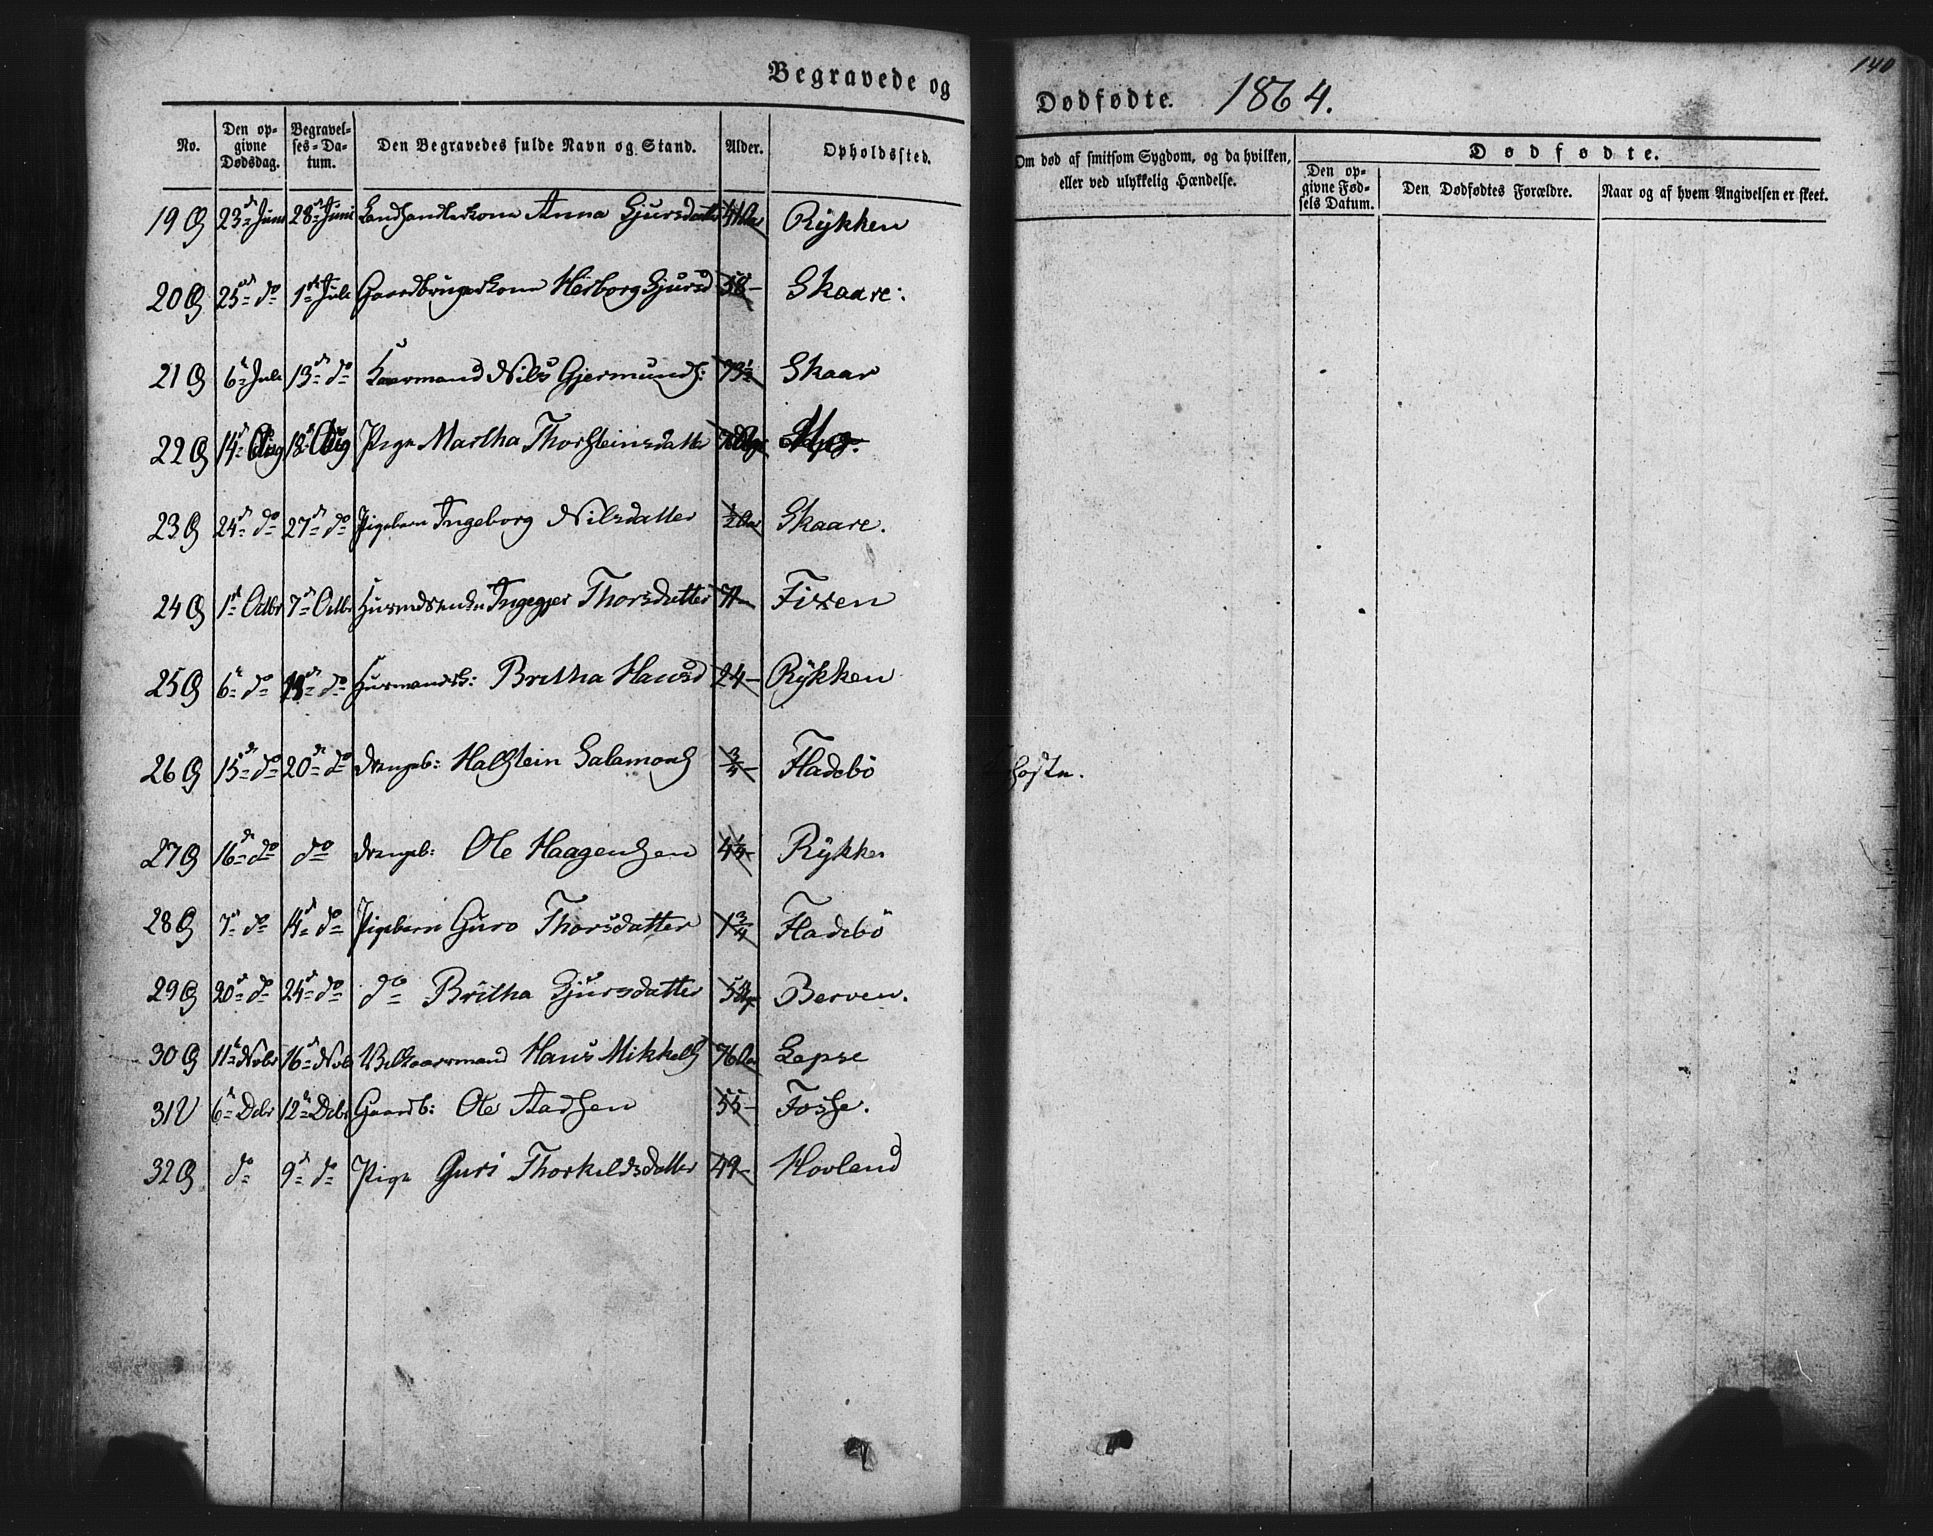 Begravede og Dødfødte. 1864.
140
No. | Den opgivne Dødsdag. | Begravelses-Datum. | Den Begravedes fulde Navn og Stand. | Alder. | Opholdssted. | Om død af smitsom Sygdom, og da hvilken, eller ved ulykkelig Hændelse. | Dødfødte.
Den opgivne Fødsels Datum. | Den Dødfødtes Forældre. | Naar og af hvem Angivelsen er skeet.
19 23 Juni 28 Juni Landhandlerkone Anna Sjursdatter Aar Rykken
20 25 do 1 Juli Gaardbrugerkone Herborg Sjursd 58 – Skaare.
21 6 Juli 13 do Kaarmand Nils Gjermunds: 73½ Skaar
22 14 Aug 18 Aug Pige Martha Thorsteinsdatter
23 24 do 27 do Pigebarn Ingeborg Nilsdatter ½ Aar Skaare.
24 1 Octbr 7 Octbr Ingegjer Thorsdatter Fixen
25 6 do do Huusmandsk: Britha Hansd 24 – Rykken
26 15 do 20 do Drengeb: Halstein Salamons ¾ – Fladebö hoste.
27 16 do do Drengeb: Ole Haagensen 4¼ – Rykken
28 7 do 14 do Pigebarn Guro Thorsdatter 1¾ Fladebö
29 20 do 24 do do Britha Sjursdatter Berven.
30 11 Nvbr 16 Nvb Vilkaarmand Hans Mikkels 76 Aar Lepse
31 6 Dcbr 12 Dcbr Gaardb: Ole Aadsen 55 – Fosse.
32 do 9 do Pige Guri Thorkildsdatter 49 – Hovland